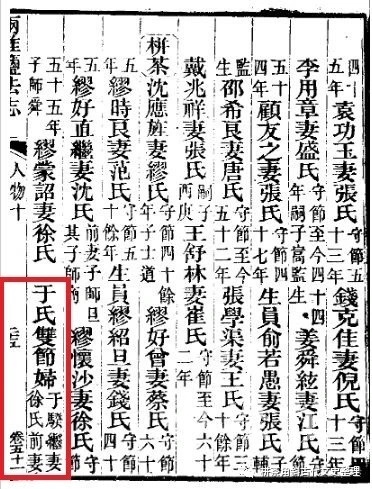 四十五年袁功玉妻張氏守節五十三年錢克佳妻倪氏守節十三年
李用章妻盛氏守節至今四十四年嗣子富監生姜舜絃妻江氏守節
五十四年顧友之妻張氏守節四十七年生員俞若愚妻張氏守節
監生邵希良妻唐氏守節五十二年張學渠妻王氏守節至今六十餘年
戴兆祥妻張氏嗣子丙庚王舒林妻崔氏守節至今六十二年
栟茶沈應旌妻繆氏守節四十餘年子士道繆好曾妻蔡氏守節六十
五年繆時良妻范氏守節五十餘年生員繆紹旦妻錢氏守節四十
五年繆好直繼妻沈氏前妻子師旦其子師商繆懷沙妻徐氏守節
五十五年子師舜繆蒙詒妻徐氏于氏雙節婦于騤繼妻徐氏前妻
兩淮鹽法志 人物十 卷五十二